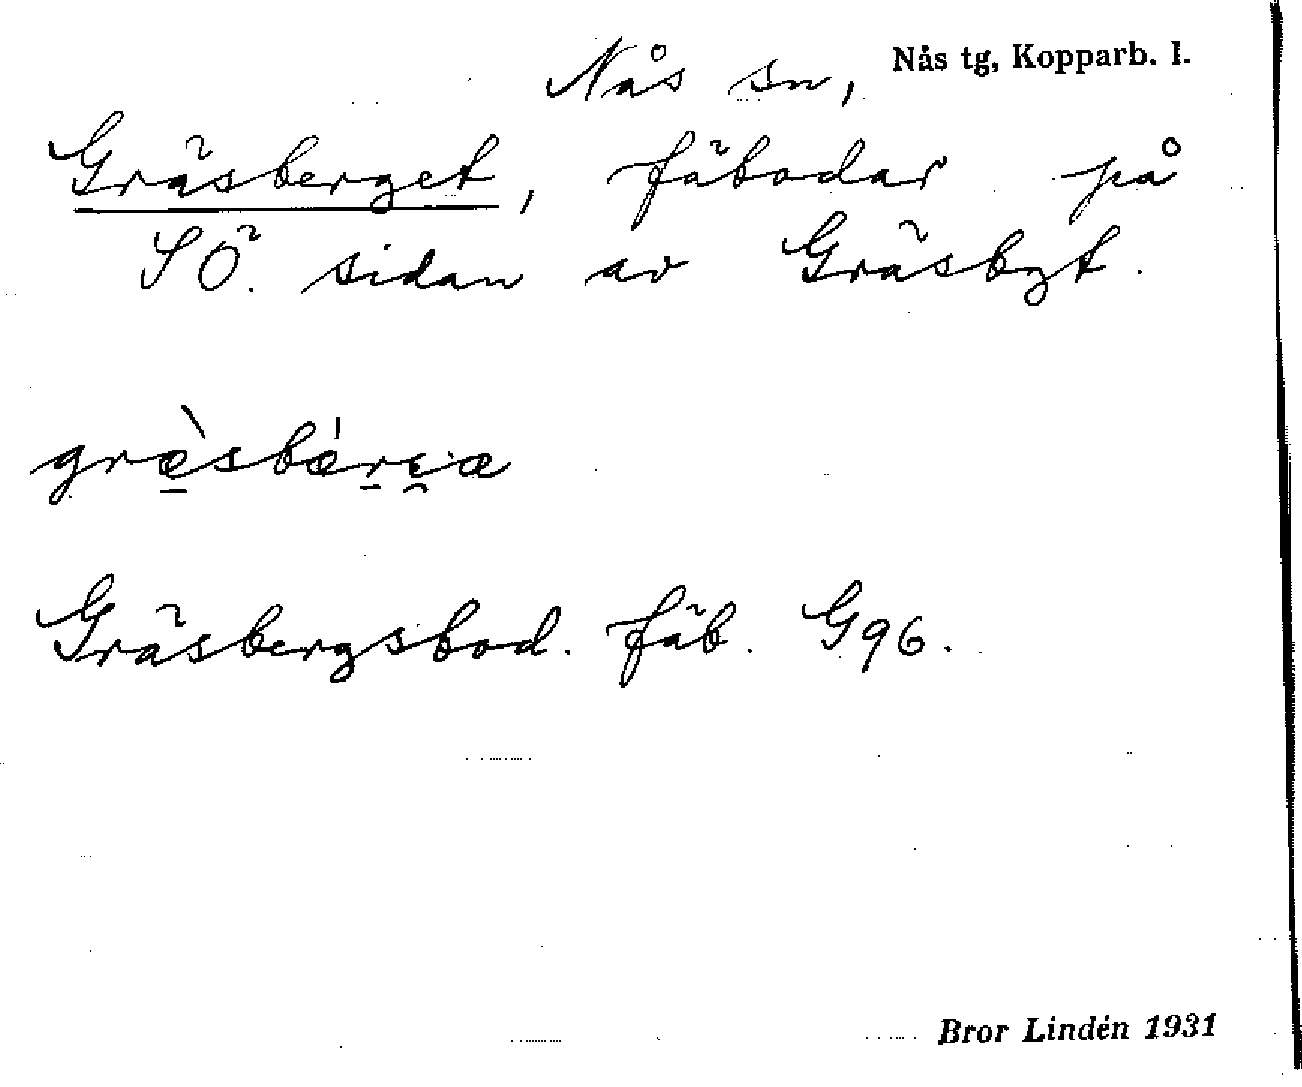 Nås sn, Nås tg, Kopparb. l.
Gräsberget, fäbodar på
SÖ. sidan av Gräsbgt.
Gräsbergsbod. fäb. G96.
Bror Lindén 1931